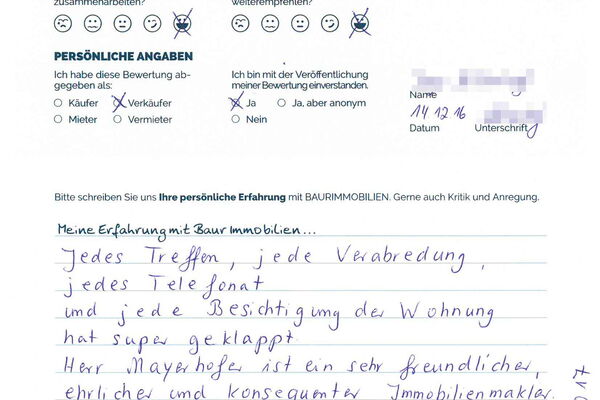 zusammenarbeiten?
weiterempfehlen?
PERSÖNLICHE ANGABEN
Ich habe diese Bewertung ab-
gegeben als:
Käufer
Verkäufer
Mieter
Vermieter
Ich bin mit der Veröffentlichung
meiner Bewertung einverstanden.
Ja
Ja, aber anonym
Nein
Name
14.12.16
Datum
Unterschrift
Bitte schreiben Sie uns Ihre persönliche Erfahrung mit BAURIMMOBILIEN. Gerne auch Kritik und Anregung.
Meine Erfahrung mit Baur Immobilien...
Jedes Treffen, jede Verabredung,
jedes Telefonat
und jede Besichtigung der Wohnung
hat super geklappt.
Herr Mayerhofer ist ein sehr freundlicher,
ehrlicher und konsequenter Immobilienmakler.